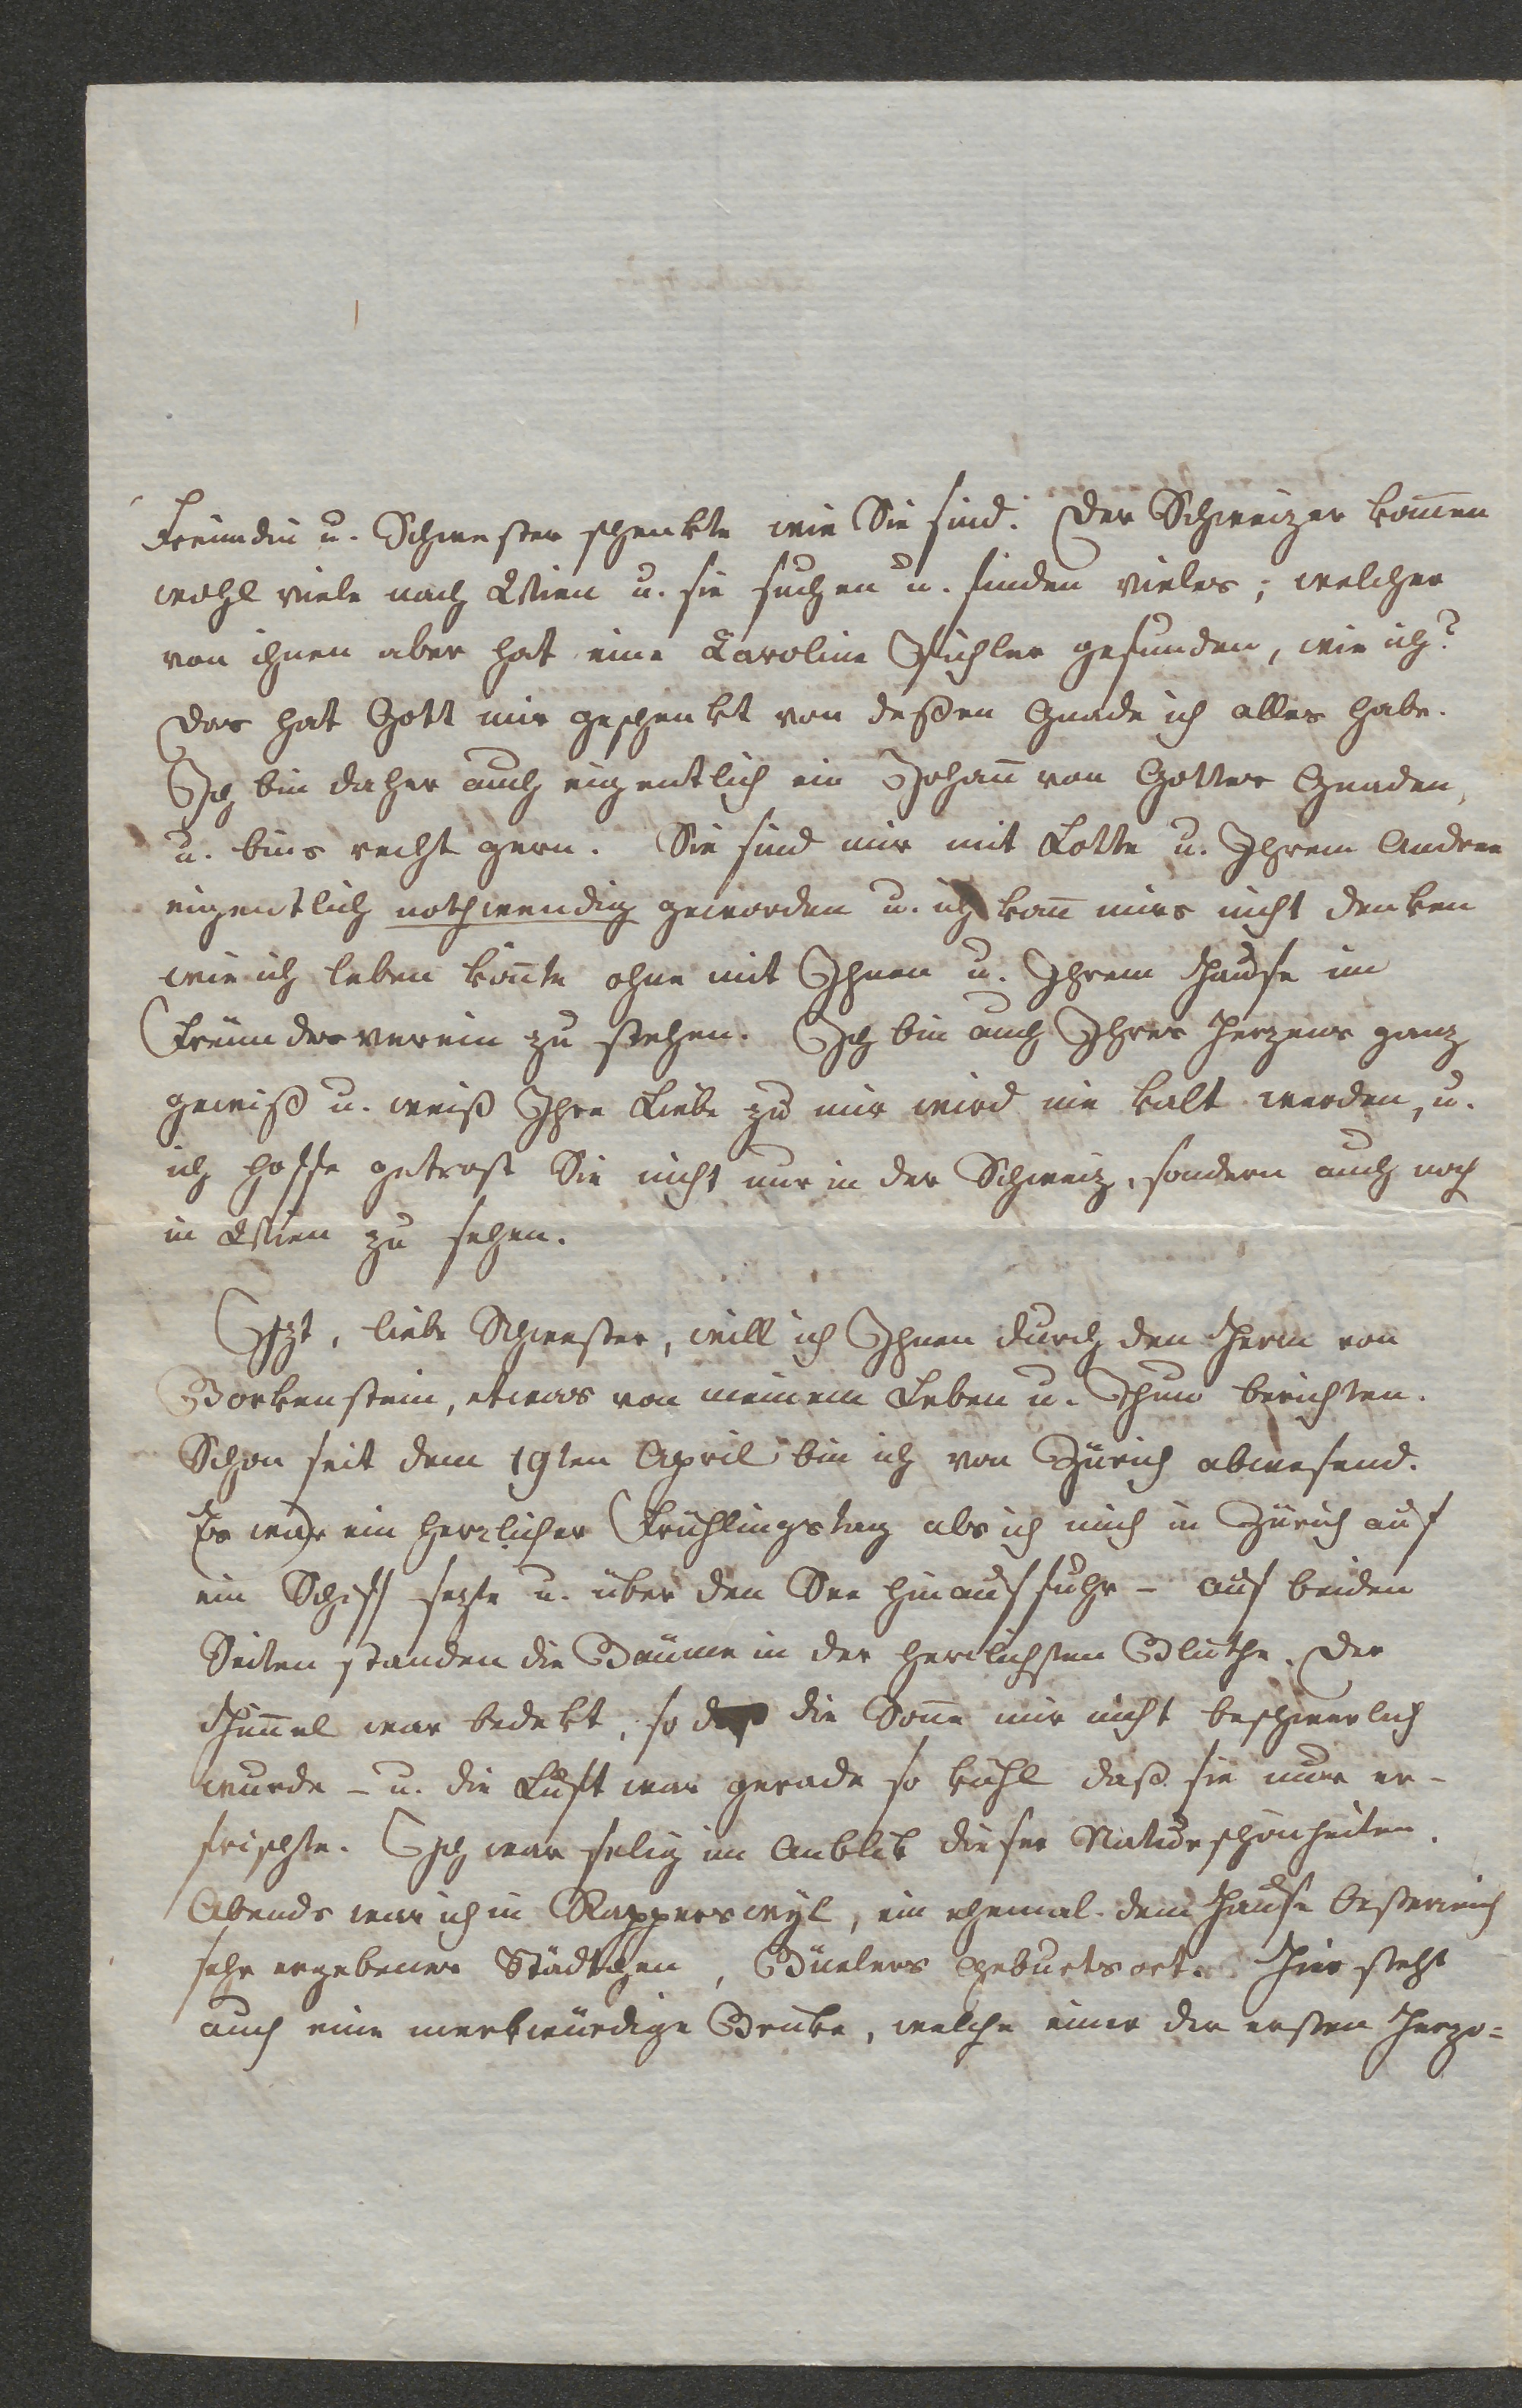 Freundin u. Schwester schenkte wie Sie sind. Der Schweizer kom̅en
wohl viele nach Wien u. sie suchen u. finden vieles; welcher
von ihnen aber hat eine Caroline Pichler gefunden, wie ich?
Das hat Gott mir geschenkt von deßen Gnade ich alles habe.
Ich bin daher auch eigentlich ein Johan̅ von Gottes Gnaden,
u. bins recht gern. Sie sind mir mit Lotte u. Ihrem Andren
eigentlich nothwendig geworden u. ich kan̅ mirs nicht denken
wie ich leben kön̅te ohne mit Ihnen u. Ihrem Hause im
Freundesverein zu stehen. Ich bin auch Ihres Herzens ganz
gewiß u. weiß Ihre Liebe zu mir wird nie kalt werden, u.
ich hoffe getrost Sie nicht nur in der Schweiz, sondern auch noch
in Wien zu sehen.
Izt, liebe Schwester, will ich Ihnen durch den Herrn von
Borkenstein, etwas von meinem Leben u. Thun berichten.
Schon seit dem 19ten April bin ich von Zürich abwesend.
Es war ein herrlicher Frühlingstag als ich mich in Zürich auf
ein Schiff sezte u. über den See hinauffuhr – auf beiden
Seiten standen die Bäume in der herrlichsten Blüthe. Der
Him̅el war bedekt, so daß die Son̅e mir nicht beschwerlich
wurde – u. die Luft war gerade so kühl daß sie nur er-
frischte. Ich war selig im Anblik dieser Naturschönheiten.
Abends war ich in Rapperswyl, ein ehemal. dem Hause Oesterreich
sehr ergebenes Städtchen, Büelers Geburtsort. Hier steht
auch eine merkwürdige Brüke, welche einer der ersten Herzo=